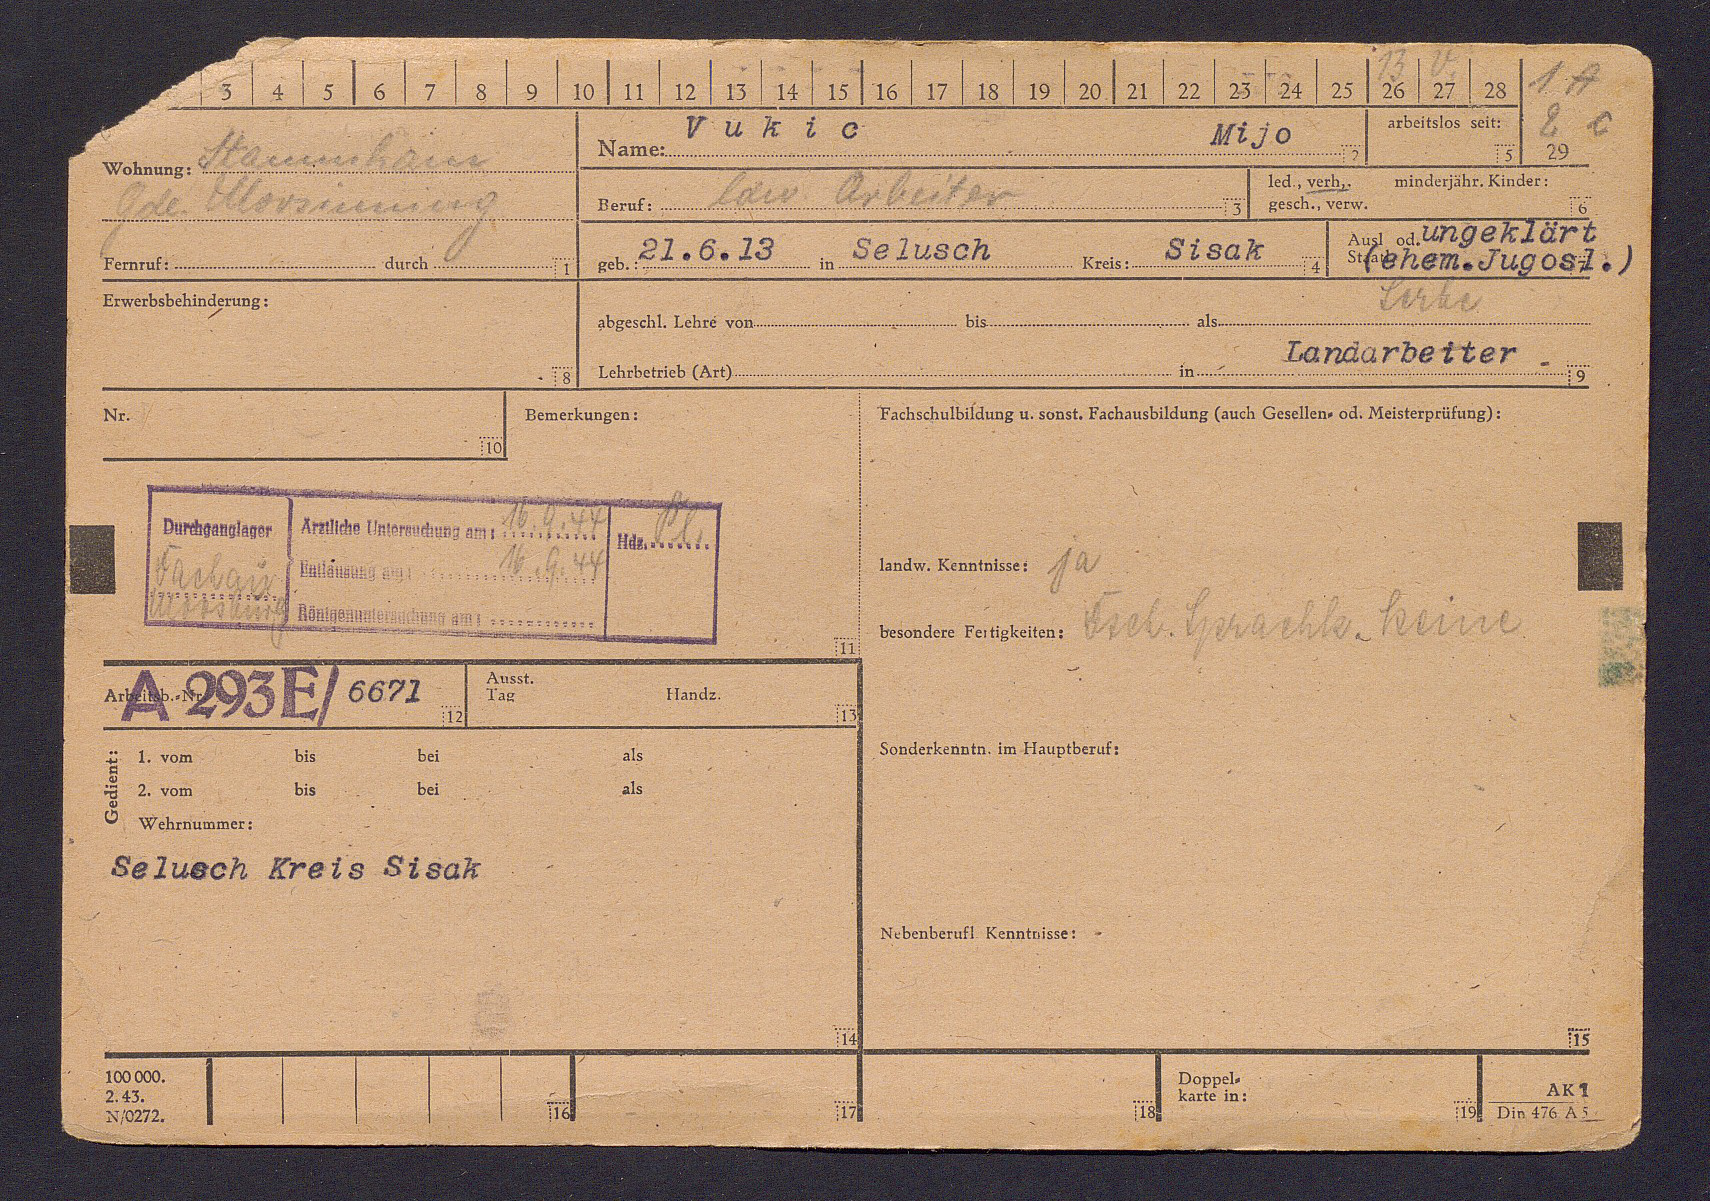 3 4 5 6 7 8 9 10 11 12 13 14 15 16 17 18 19 20 21 22 23 24 25 26 27 28
13 V.
1 A
2 c
29
Wohnung: Stammham
Gde.
Fernruf: durch 1
Name: Vukic Mijo 2
arbeitslos seit: 5
Beruf: ldw. Arbeiter 3
led., verh., minderjähr. Kinder:
gesch., verw. 6
geb.: 21.6.13 in Selusch Kreis: Sisak 4
Ausl od. ungeklärt
Staatl (ehem.Jugosl.)
Serbe
Erwerbsbehinderung:
8
abgeschl. Lehre von bis als
Landarbeiter
Lehrbetrieb (Art) in 9
Nr.
10
Bemerkungen:
Fachschulbildung u. sonst. Fachausbildung (auch Gesellen- od. Meisterprüfung):
Durchganglager
Moosburg
Ärztliche Untersuchung am: 16.9.44
Entlausung am: 16.9.44
Röntgenuntersuchung am:
Hdz. Pl.
11
landw. Kenntnisse: ja
besondere Fertigkeiten: Dsch. Sprachk. keine
Arbeitsb.-Nr. A 293E/ 6671 12
Ausst.
Tag Handz. 13
Gedient:
1. vom bis bei als
2. vom bis bei als
Wehrnummer:
Selusch Kreis Sisak
14
Sonderkenntn. im Hauptberuf:
Nebenberufl. Kenntnisse:
15
100 000.
2. 43.
N/0272.
16
17
18
Doppel-
karte in: 19
AK 1
Din 476 A 5